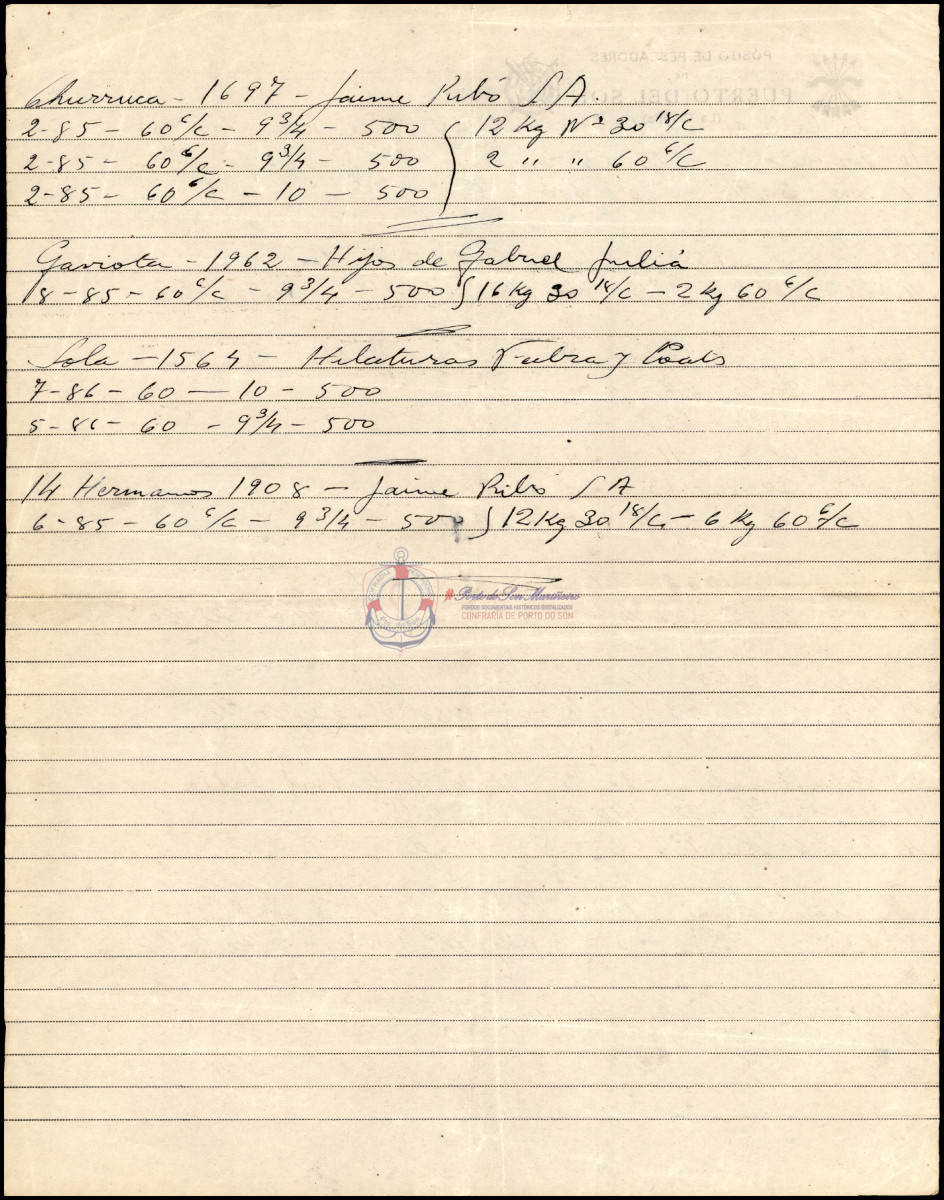 Churruca - 1697 - Jaime Ribó S A.
2-85 - 60 6/c - 9 3/4 - 500 } 12 kg Nº 30 18/c
2-85 - 60 6/c - 9 3/4 - 500 2 " " 60 6/c
2-85 - 60 6/c - 10 - 500
Gaviota - 1962 - Hijos de Gabriel Juliá
8-85 - 60 6/c - 9 3/4 - 500 } 16 kg 30 18/c - 2 kg 60 6/c
Sola - 1564 - Hilaturas Fabra y Coats
7-86 - 60 - 10 - 500
5-86 - 60 - 9 3/4 - 500
14 Hermanos 1908 - Jaime Ribó S A
6-85 - 60 6/c - 9 3/4 - 500 } 12 kg 30 18/c - 6 kg 60 6/c
# Porto do Son Mariñeiro
FONDOS DOCUMENTAIS HISTÓRICOS DIXITALIZADOS
CONFRARÍA DE PORTO DO SON